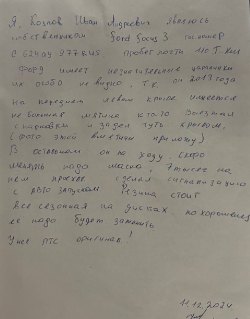 Я, Козлов Иван Андреевич являюсь
собственником Ford Focus 3 госномер
С 624 ОУ 977 RUS пробег почти 110 т. км
Форд имеет незначительные царапины
их особо не видно, т.к. он 2013 года
На переднем левом крыле имеется
не большая вмятина кто-то выезжал
с парковки и задел чуть крылом,
(фото этой вмятины приложу)
В остальном он на ходу, скоро
менять надо масло, 7 тысяч на
нем проехал сделал сигнализацию
с авто запуском. Резина стоит
все сезонная на дисках, по хорошему
ее надо будет заменить
У нее ПТС оригинал!
11.12.2024